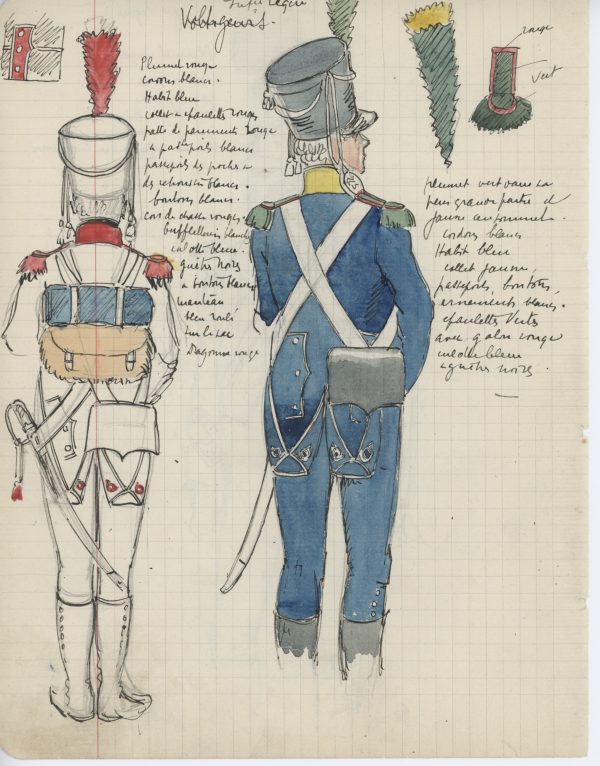 Voltigeurs.
Plumet rouge
cordons blancs.
Habit bleu
collet & épaulettes rouges
patte de parements rouge
à passepoils blancs
passepoils des poches &
des retroussis blancs.
boutons blancs.
cors de chasse rouges.
buffleterie blanche
culotte bleue.
guêtres noires
à boutons blancs
manteau
bleu roulé
sur le sac
Dragonne rouge
rouge
vert
plumet vert dans sa
plus grande partie et
jaune au sommet.
cordons blancs
Habit bleu
collet jaune,
passepoils, boutons,
ornements blancs.
épaulettes vertes
avec galon rouge
culotte bleue
guêtres noires.